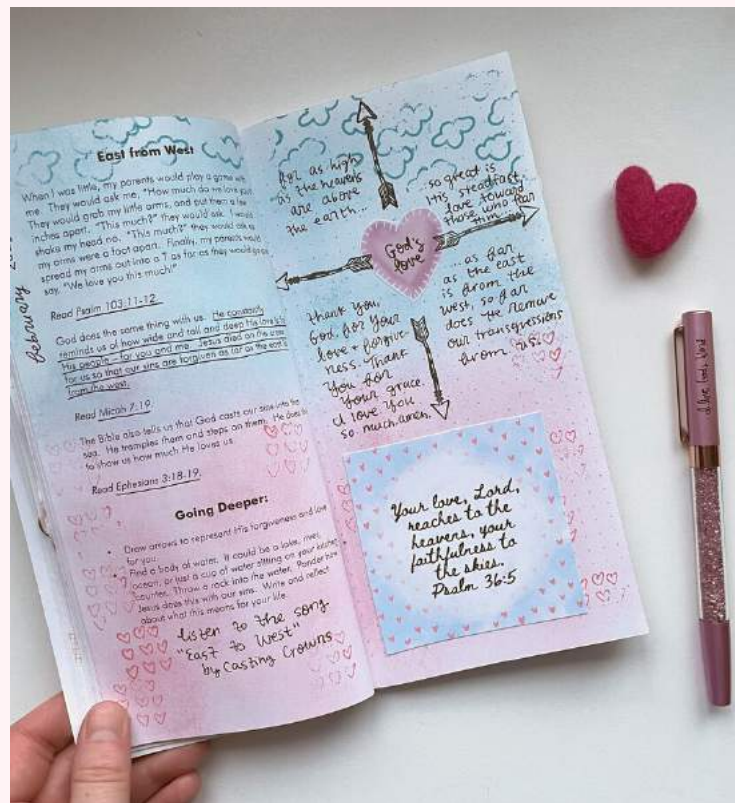 East from West
When I was little, my parents would play a game with
me. They would ask me, "How much do we love you?"
They would grab my little arms, and put them a few
inches apart. "This much?" they would ask. I would
shake my head no. "This much?" they would ask as
my arms were a foot apart. Finally, my parents would
spread my arms out into a T as far as they would go and
say, "We love you this much!"
Read Psalm 103:11-12.
God does the same thing with us. He constantly
reminds us of how wide and tall and deep His love is for
His people – for you and me. Jesus died on the cross
for us so that our sins are forgiven as far as the east is
from the west.
Read Micah 7:19.
The Bible also tells us that God casts our sins into the
sea. He tramples them and steps on them. He does this
to show us how much He loves us.
Read Ephesians 3:18-19.
Going Deeper:
• Draw arrows to represent His forgiveness and love
for you.
• Find a body of water. It could be a lake, river,
ocean, or just a cup of water sitting on your kitchen
counter. Throw a rock into the water. Ponder how
Jesus does this with our sins. Write and reflect
about what this means for your life.
listen to the song
"East to West"
by Casting Crowns
February
for as high
as the heavens
are above
the earth...
...so great is
His steadfast
love toward
those who fear
Him
God's
love
...as far
as the east
is from the
west, so far
does He remove
our transgressions
from us.
thank you,
God, for Your
love + forgive
ness. Thank
You for
Your grace.
I love You
so much. amen.
Your love, Lord,
reaches to the
heavens, your
faithfulness to
the skies.
Psalm 36:5